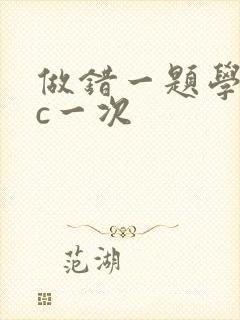 做錯一題學
c一次
范湖